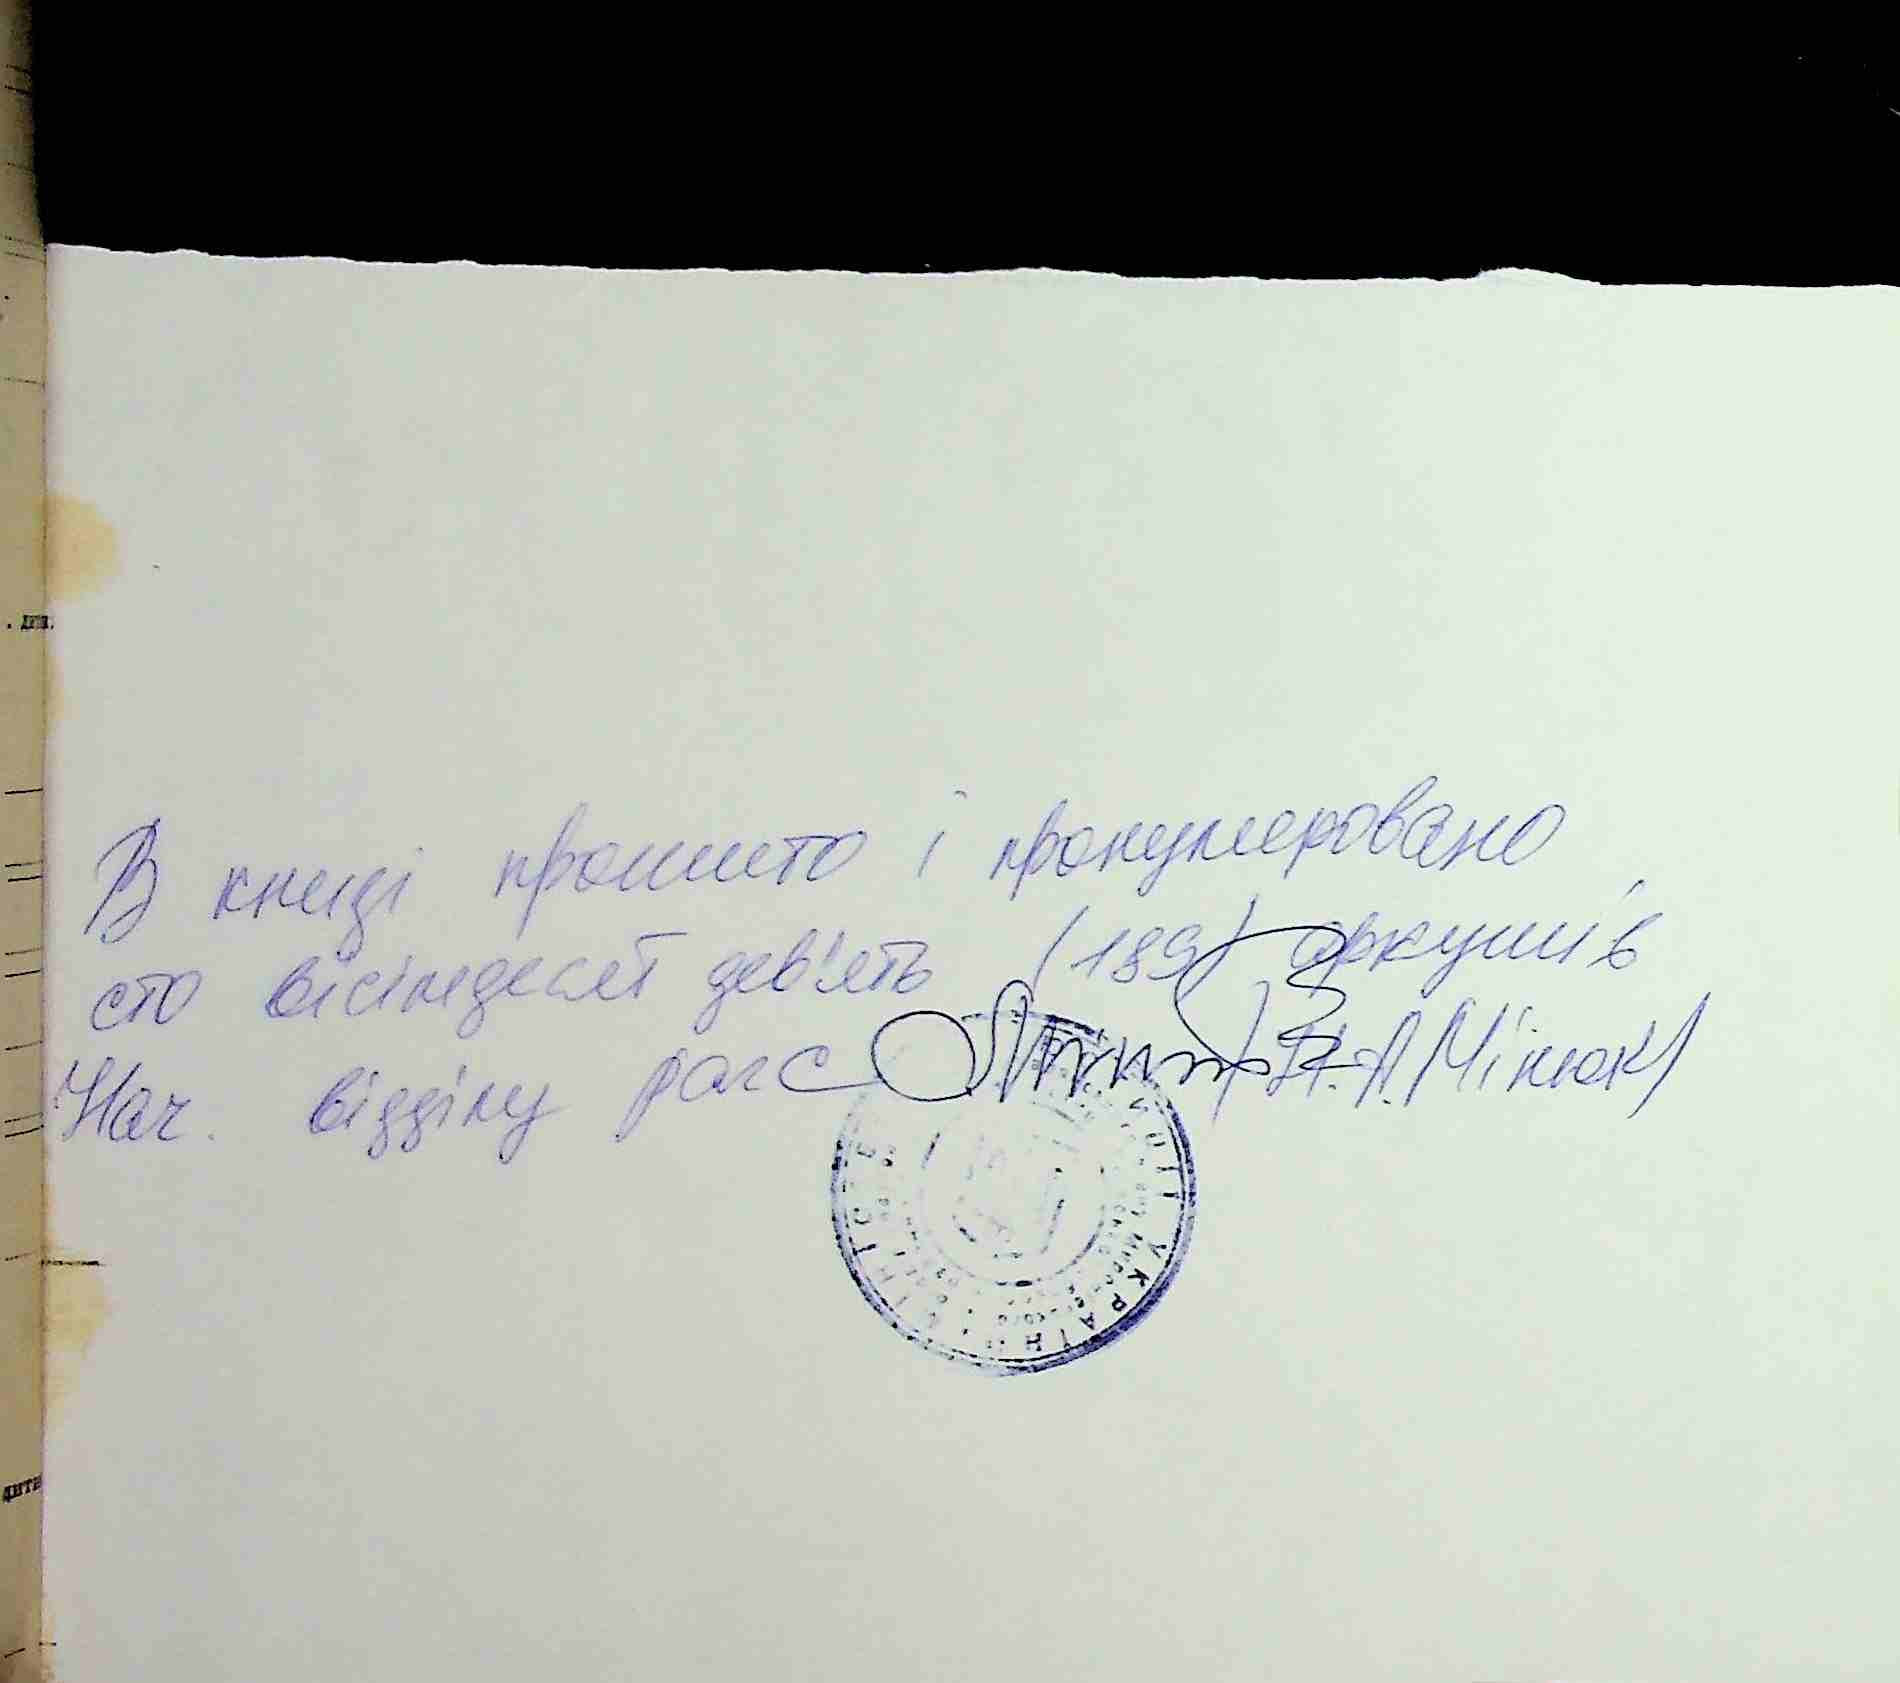 В книзі прошито і пронумеровано
сто вісімдесят дев'ять (189) аркушів
Нач. відділу рагс /Н.А. Мінюк/
УКРАЇНИ